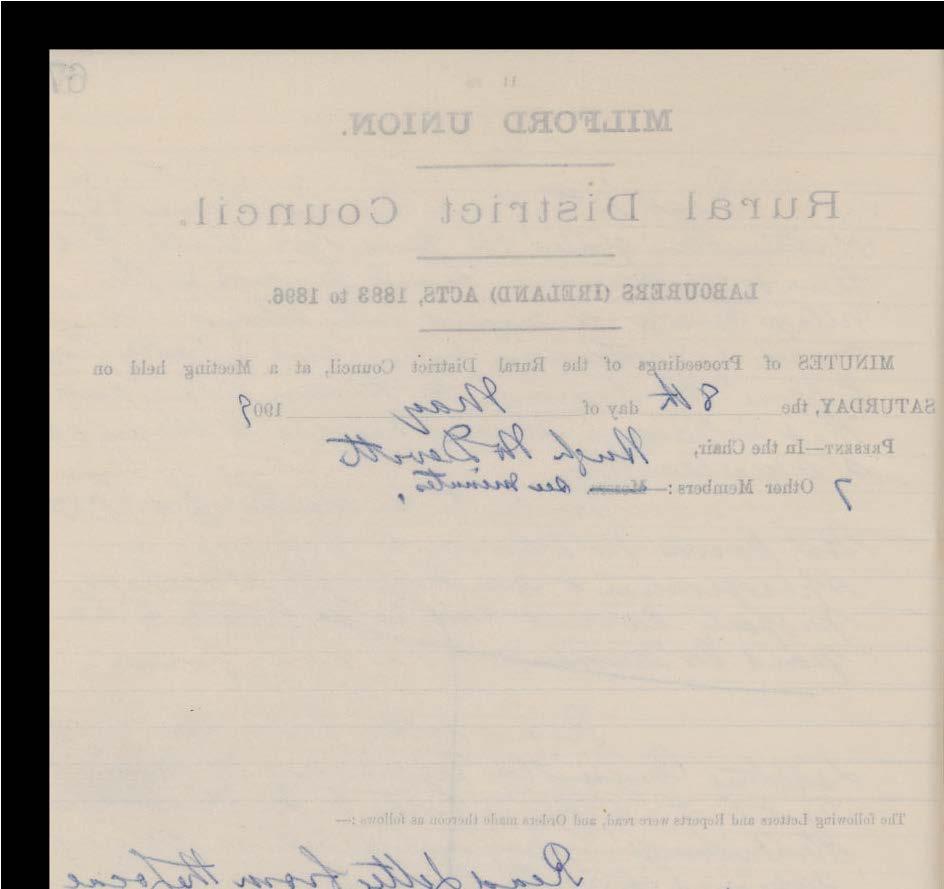 67
MILFORD UNION.
Rural District Council.
LABOURERS (IRELAND) ACTS, 1883 to 1896.
MINUTES of Proceedings of the Rural District Council, at a Meeting held on
SATURDAY, the 8th day of May 1909
PRESENT—In the Chair, Hugh McDevitt
7 Other Members:— see minutes,
The following Letters and Reports were read, and Orders made thereon as follows:—
Read Letter from the Local